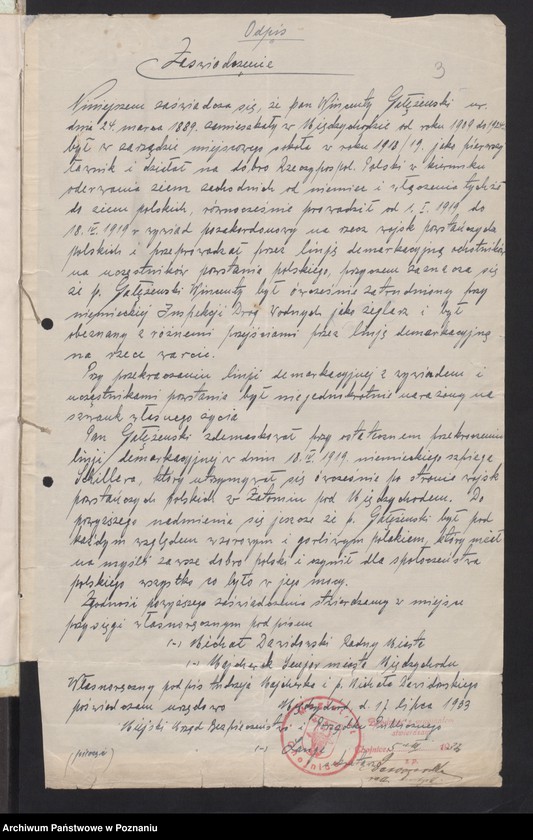 Odpis
Zaświadczenie
3
Niniejszem zaświadcza się, że pan Wincenty Gałężewski ur.
dnia 24. marca 1889. zamieszkały w Międzychodzie od roku 1909 do 1924
był w zarządzie miejscowego sokoła w roku 1918/19. jako pierwszy
ławnik i działał na dobro Rzeczypospol. Polski w kierunku
oderwania ziem zachodnich od niemiec i złączenia tychże
do ziem polskich, równocześnie prowadził od 1. I. 1919. do
18. IV. 1919 r wywiad pozakordonowy na rzecz wojsk powstańczych
polskich i przeprowadzał przez linję demarkacyjną ochotników
na uczestników powstania polskiego, przyczem zaznacza się
że p. Gałężewski Wincenty był ówcześnie zatrudniony przy
niemieckiej Inspekcji Dróg Wodnych jako żeglarz i był
obeznany z różnemi przejściami przez linję demarkacyjną
na rzece warcie.
Przy przekraczaniu linji demarkacyjnej z wywiadem i
uczestnikami powstania był niejednokrotnie narażony na
szwank własnego życia
Pan Gałężewski zdemaskował przy ostatecznem przekroczeniu
linji demarkacyjnej w dniu 18. IV. 1919. niemieckiego szpiega
Schillera, który utrzymywał się ówcześnie po stronie wojsk
powstańczych polskich w Zatomiu pod Międzychodem. Do
powyższego nadmienia się jeszcze że p. Gałężewski był pod
każdym względem wzorowym i gorliwym polakiem, który miał
na myśli zawsze dobro polski i czynił dla społeczeństwa
polskiego wszystko co było w jego mocy.
Zgodność powyższego zaświadczenia stwierdzamy w miejsu
przysięgi własnoręcznym podpisem
(-) Michał Dawidowski Radny Miasta
(-) Wojcharek Senjor miasta Międzychodu
Własnoręczny podpis Andrzeja Wojcharka i p. Michała Dawidowskiego
poświadczam urzędowo Międzychód, d. 17 lipca 1933
Miejski Urząd Bezpieczeństwa i Porządku Publicznego
(-)
sekretarz
(pieczęć)
Archiwum Państwowe w Poznaniu